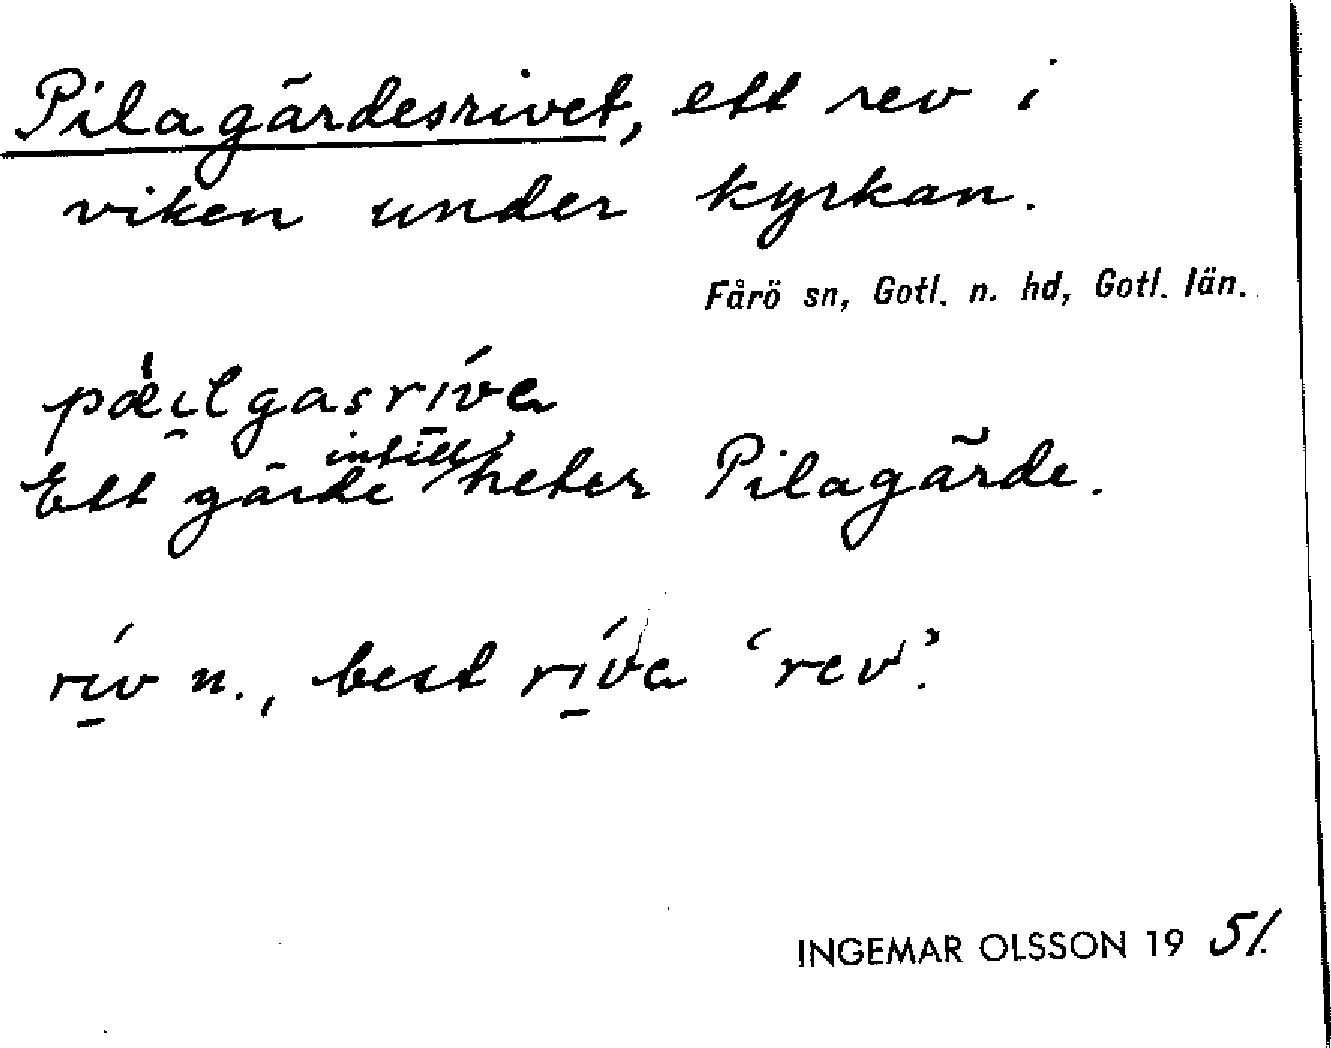 Pilagärdesrivet, ett rev i
viken under kyrkan.
Fårö sn, Gotl. n. hd, Gotl. län.
pæ̀i̯lgasrı̱́va
Ett gärde intill heter Pilagärde.
rı̱́v n., best rı̱́va ‘rev’.
INGEMAR OLSSON 19 51.